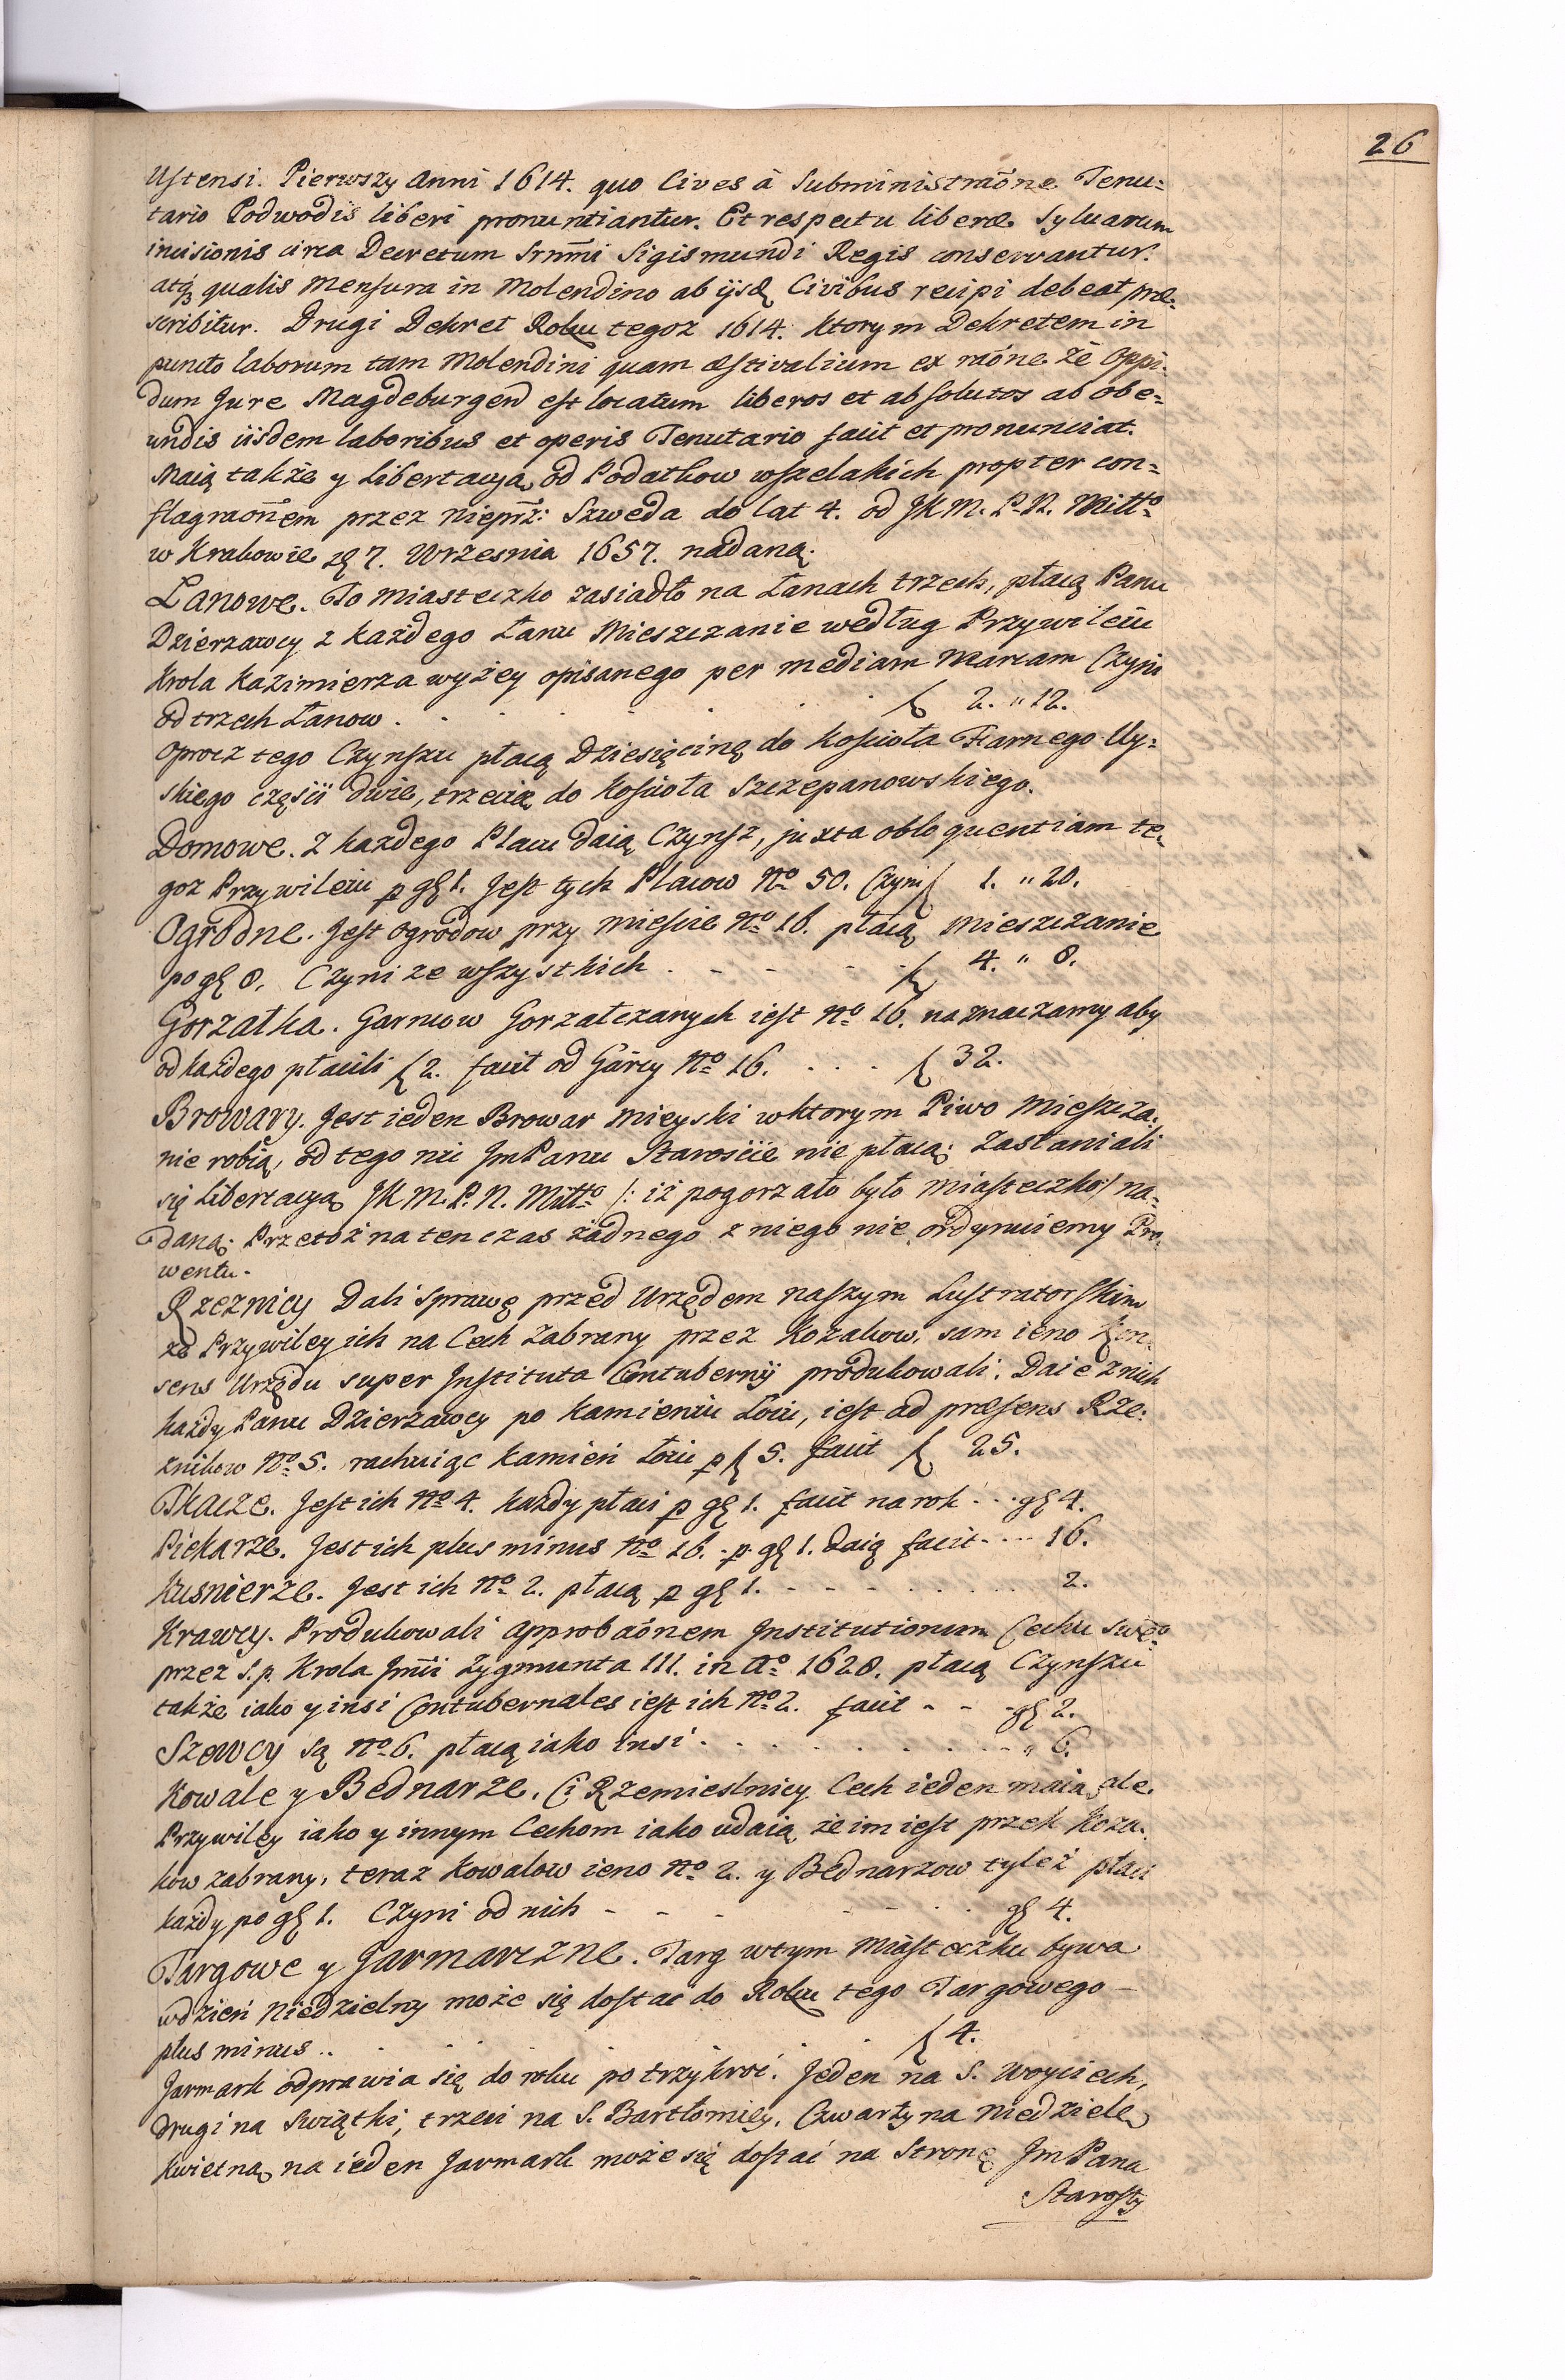 26
Ustensi. Pierwszy Anni 1614. quo Cives à Subministraõne Tenu=
tario Podwodis liberi pronuntiantur. Et respectu liberæ Sylvarum
incisionis circa Decretum Srnm̃i Sigismundi Regis conservantur.
atq3 qualis Mensura in Molendino ab ijsd Civibus recipi debeat præ=
scribitur. Drugi Dekret Roku tegoz 1614. ktorym Dekretem in
puncto laborum tam Molendini quam æstivalium ex raõne że Oppi=
dum Jure Magdeburgen est locatum liberos et absolutos ab obe=
undis iisdem laboribus et operis Tenutario facit et pronunciat.
Maią także y Libertacyą od Podatkow wszelakich propter con=
flagraõnem przez niepr̃z: Szweda do lat 4. od JKM. P. N. Mittº
w Krakowie 7. Wrzesnia 1657. nadaną.
Łanowe. To miasteczko zasiadło na Łanach trzech, płacą Panu
Dzierzawcy z każdego Łanu Mieszczanie według Przywileiu
Krola Kazimierza wyżey opisanego per mediam Marcam Czyni
od trzech Łanow . . . . . . ƒ 2. " 12.
Oprocz tego Czynszu płacą Dziesięcinę do Kościoła Farnego Uy=
skiego części dwie, trzecią do Kościoła Szczepanowskiego.
Domowe. Z każdego Placu daią Czynsz, juxta obloquentiam te=
goz Przywileiu p gƷ 1. Jest tych Placow Nº 50. Czyni ƒ 1. " 20.
Ogrodne. Jest ogrodow przy mieście Nº 16. płacą Mieszczanie
po gƷ 8. Czyni ze wszystkich . - - - - ƒ 4. " 8.
Gorzałka. Garncow Gorzałczanych iest Nº 16. naznaczamy aby
od każdego płacili ƒ 2. facit od Garcy Nº 16. . . . ƒ 32.
Browary. Jest ieden Browar Mieyski w ktorym Piwo Mieszcza=
nie robią, od tego nic JmPanu Starościie nie płacą; Zasłaniali
się Libertacyą JKM. P. N. Mittº /: iż pogorzało było miasteczko :/ na=
daną; Przetoż na ten czas żadnego z niego nie ordynuiemy Pro=
wentu.
Rzeznicy Dali Sprawę przed Urzędem naszym Lustratorskim
że Przywiley ich na Cech zabrany przez Kozakow, sam ieno Kon=
sens Urzędu super Instituta Contubernij produkowali. Daie z nich
każdy Panu Dzierzawcy po Kamieniu Łoiu, iest ad præsens Rze=
znikow Nº 5. rachuiąc Kamień Łoiu p ƒ 5. facit ƒ 25.
Tkacze. Jest ich Nº 4. każdy płaci p gƷ 1. facit na rok . . . gƷ 4.
Piekarze. Jest ich plus minus Nº 16. p gƷ 1. daią facit - - - 16.
Kusnierze. Jest ich Nº 2. płacą p gƷ 1. - - - - - - 2.
Krawcy. Produkowali approbaõnem Institutionum Cechu swego
przez S. p. Krola Jm̃ci Zygmunta III. in Aº 1628. płacą Czynszu
także iako y insi Contubernales iest ich Nº 2. facit - - - gƷ 2.
Szewcy są Nº 6. płacą iako insi . . . . . . . . " 6.
Kowale y Bednarze. Ci Rzemieslnicy Cech ieden maią, ale
Przywiley iako y innym Cechom iako udaią, że im iest przez Koza=
kow zabrany, teraz Kowalow ieno Nº 2. y Bednarzow tyleż płaci
każdy po gƷ 1. Czyni od nich - - - - - - gƷ 4.
Targowe y Jarmarczne. Targ w tym Miasteczku bywa
w dzień Niedzielny może się dostać do Roku tego Targowego —
plus minus . . . . . . ƒ 4.
Jarmark odprawia się do roku po trzykroć. Jeden na S. Woyciech,
drugi na Swiątki, trzeci na S. Bartłomiey, Czwarty na Niedzielę
Kwietną, na ieden Jarmark może się dostać na Stronę JmPana
Starosty